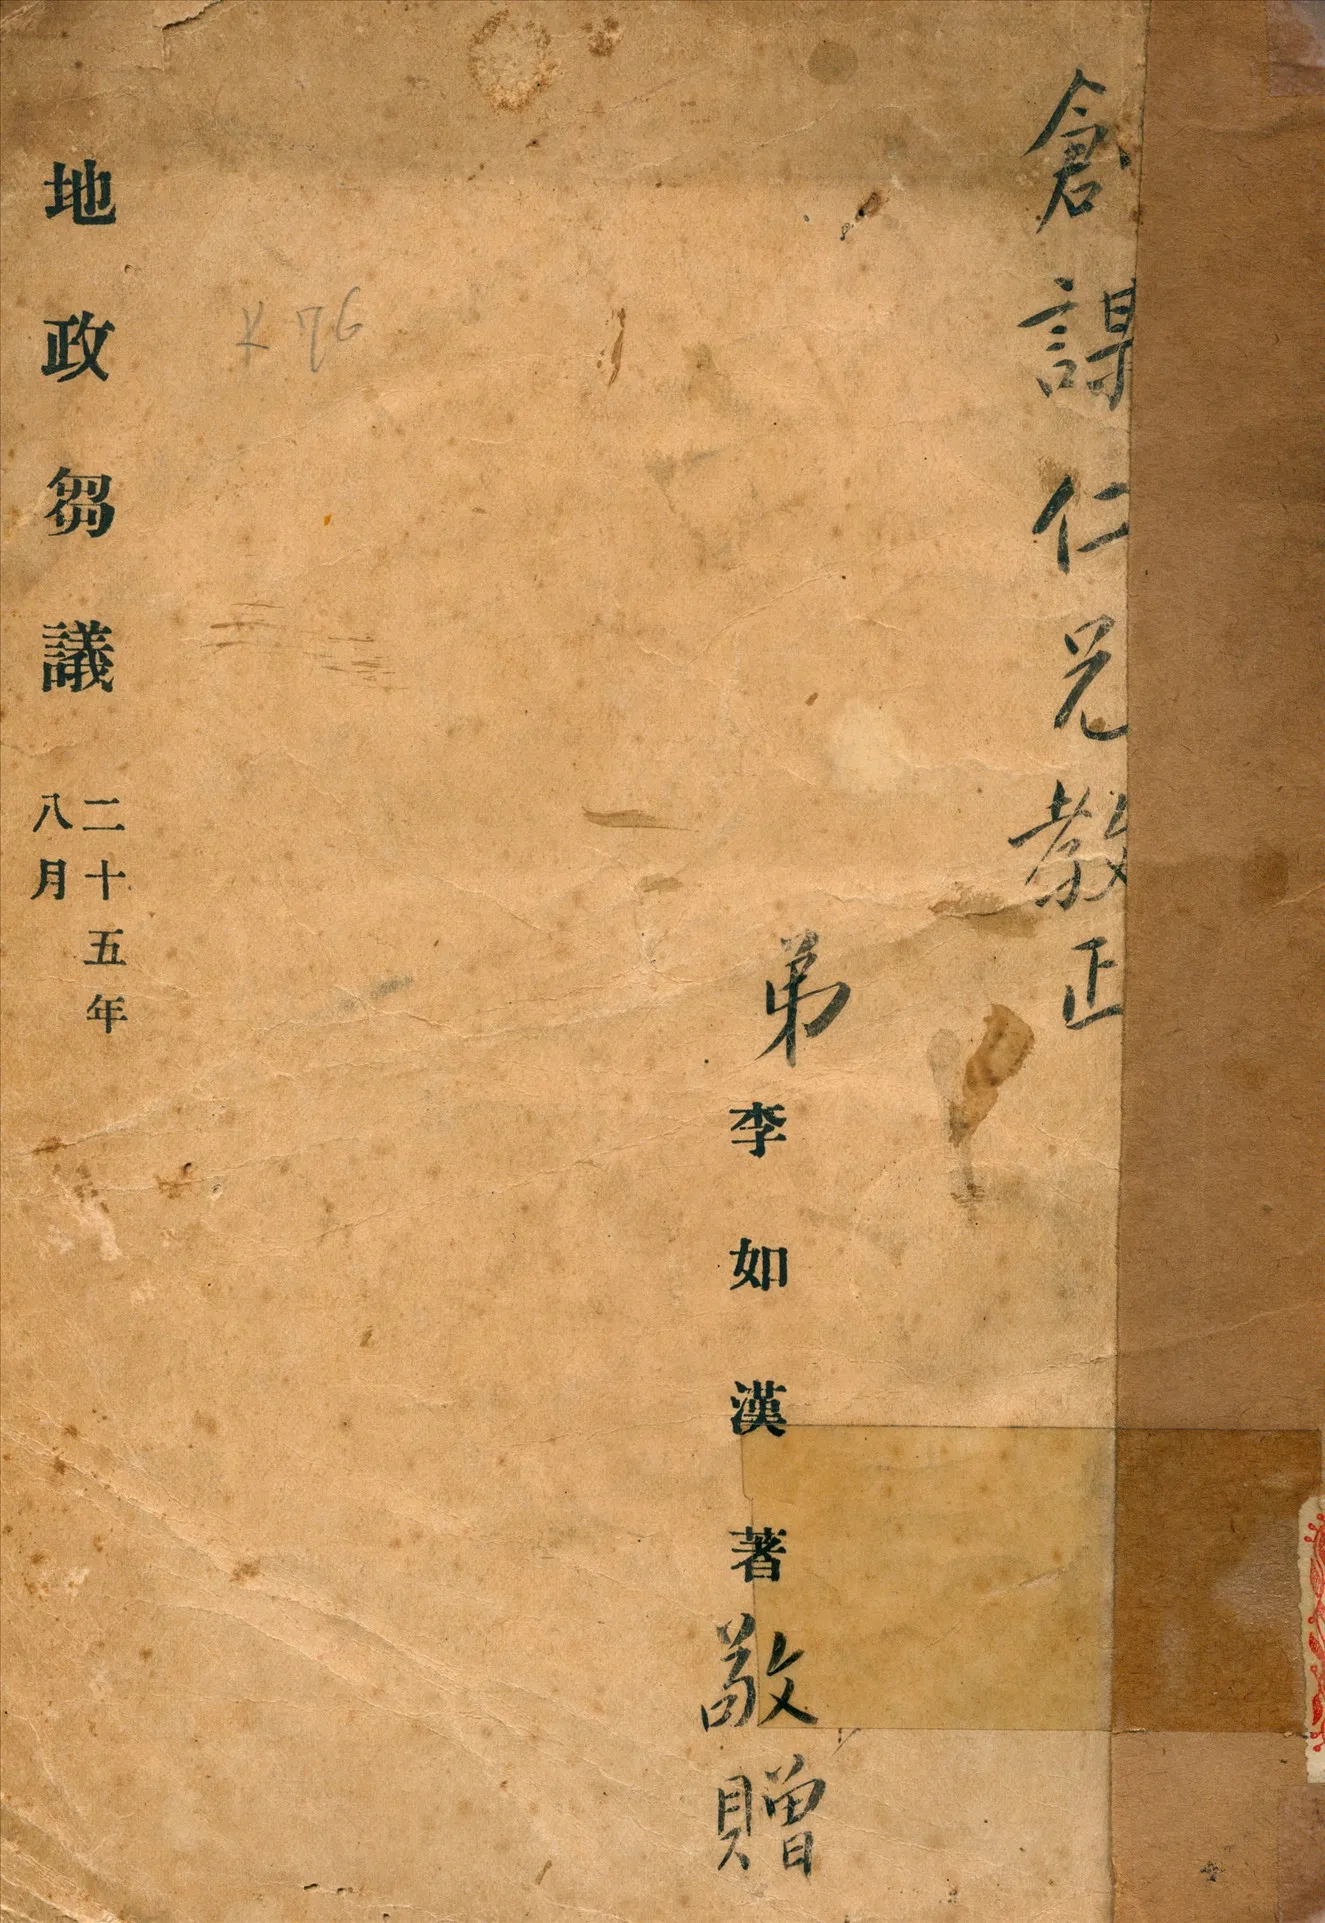 倉謀仁兄教正
弟
李如漢著
敬贈
地政芻議
二十五年
八月